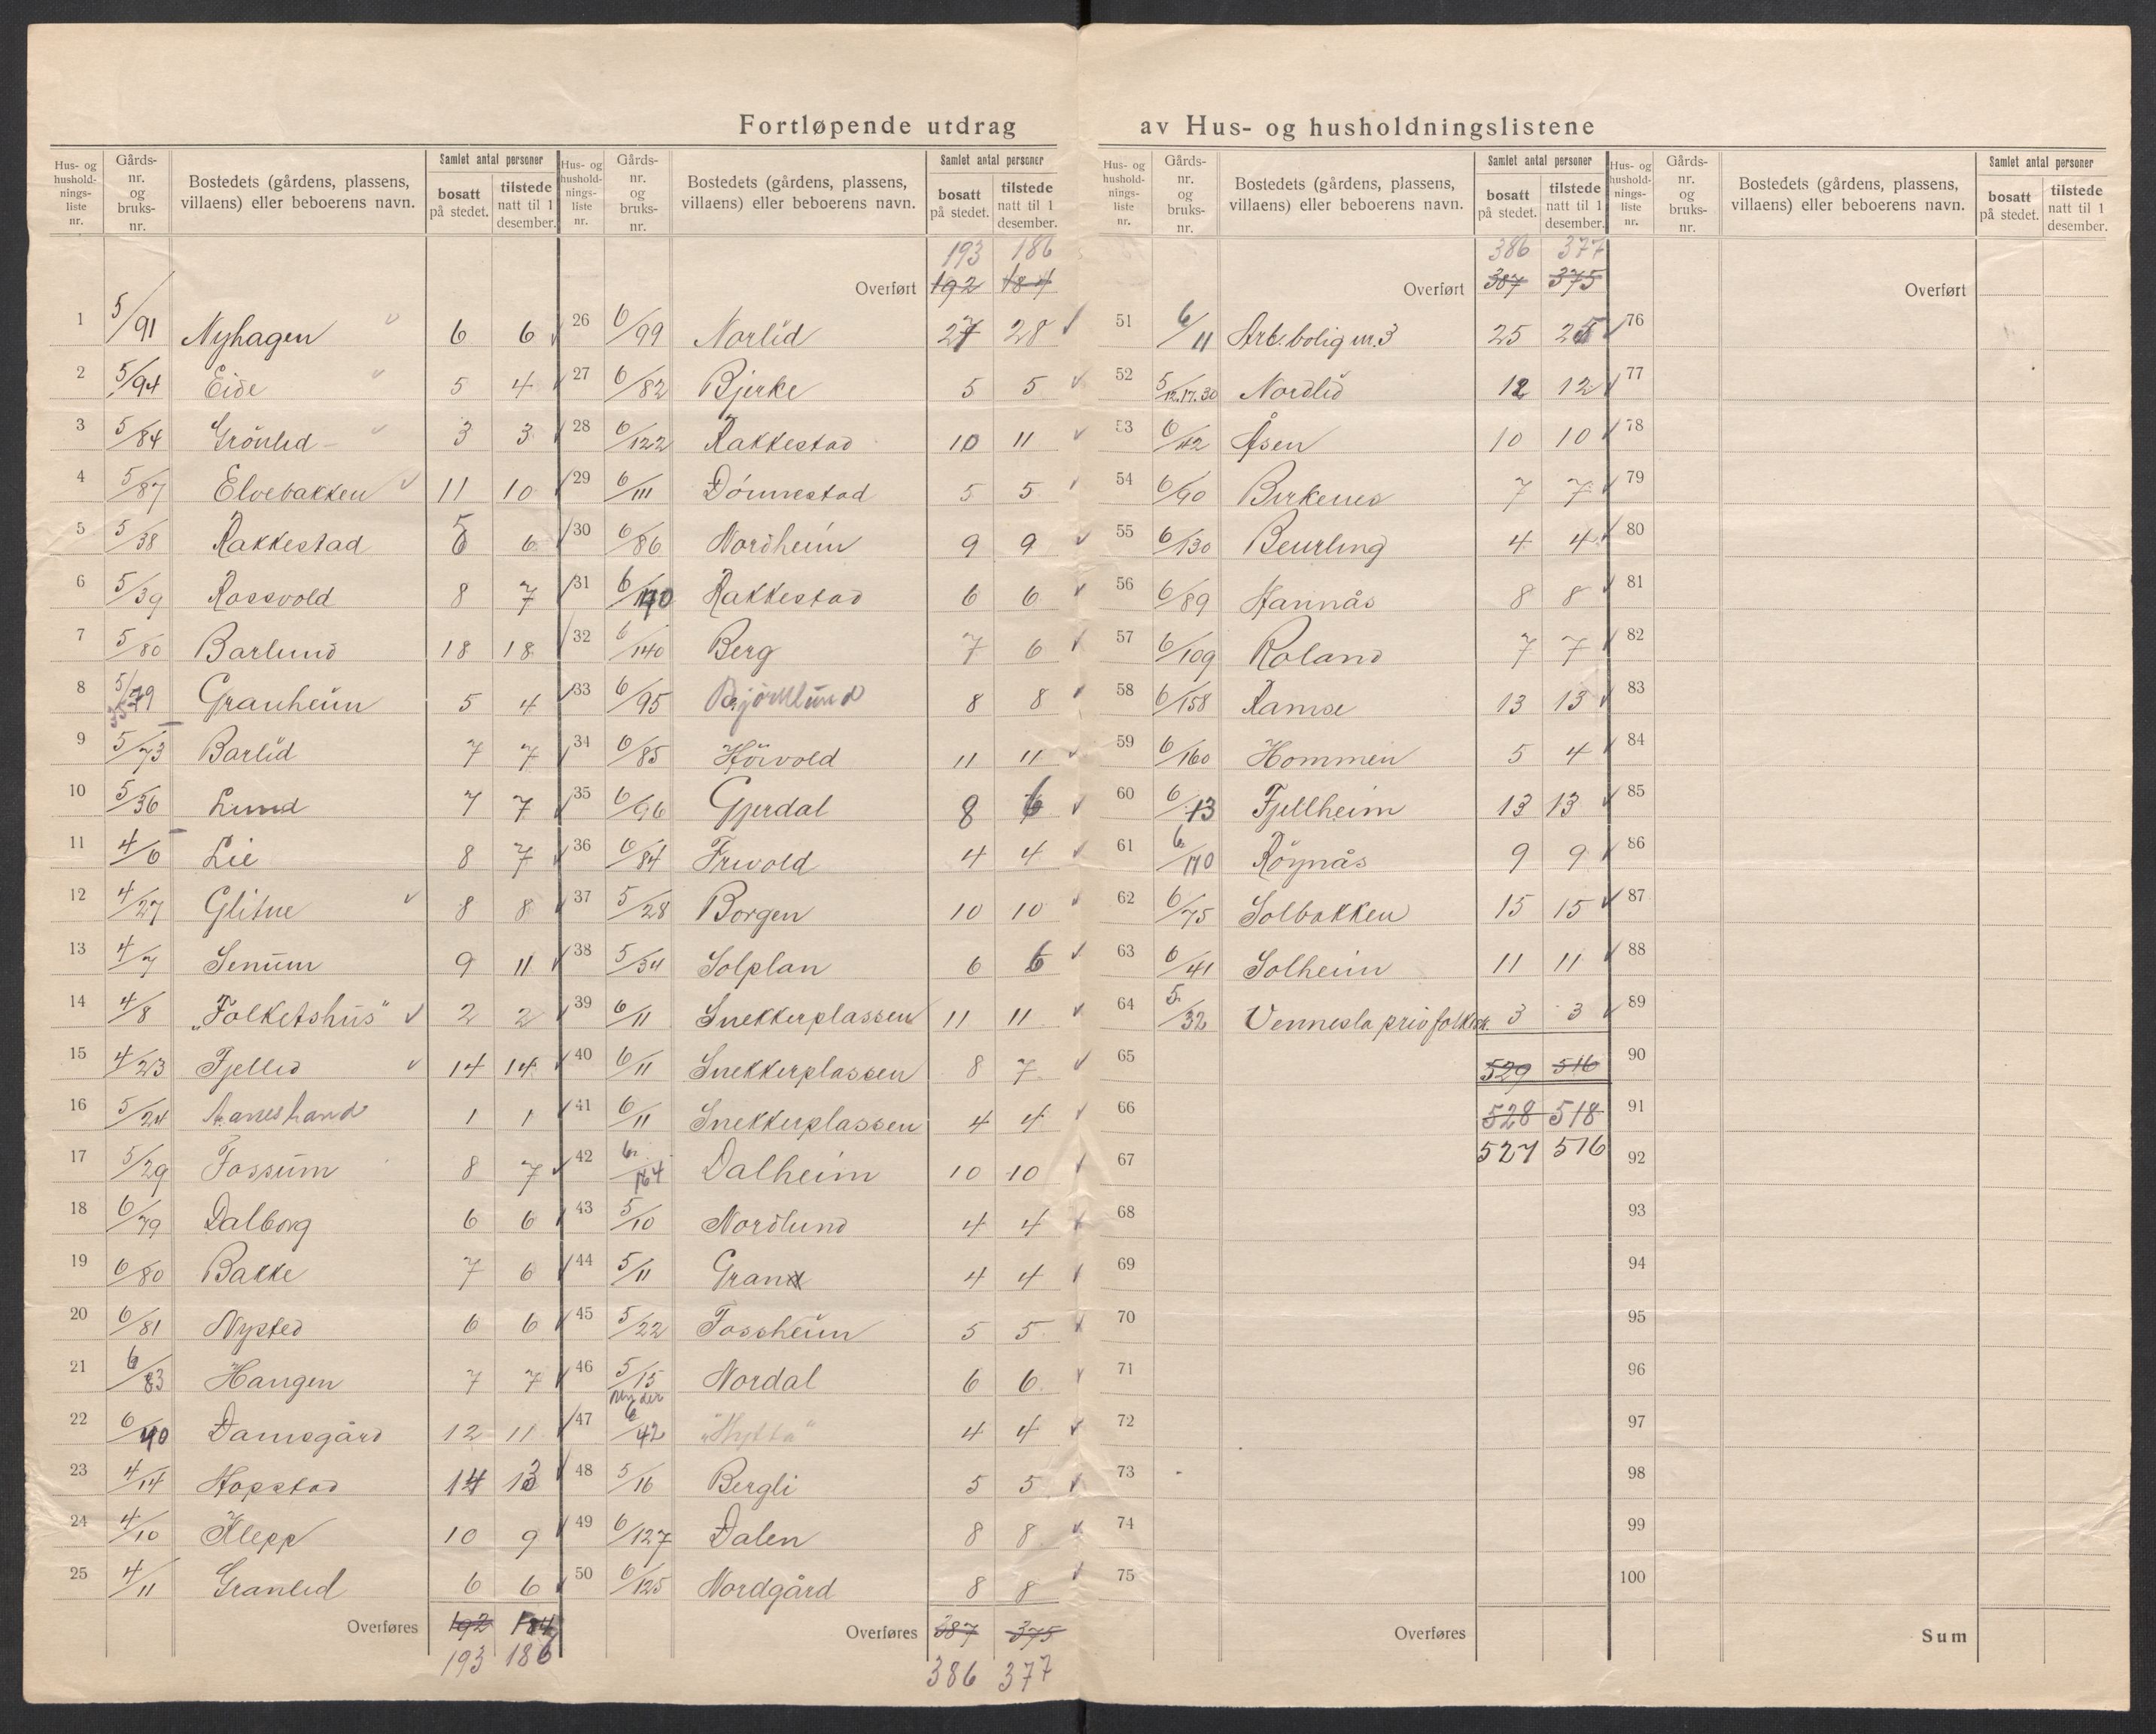 Fortløpende utdrag av Hus- og husholdningslistene
Hus- og husholdnings-liste nr. | Gårds-nr. og bruks-nr. | Bostedets (gårdens, plassens, villaens) eller beboerens navn. | Samlet antal personer | bosatt på stedet. | tilstede natt til 1 desember.
1 5/91 Nyhagen 6 6
2 5/94 Eide 5 4
3 5/84 Grönlid 3 3
4 5/87 Elvebakken 11 10
5 5/38 Rakkestad 5 6
6 5/39 Rossvold 8 7
7 5/80 Barlund 18 18
8 5/79 Granheim 5 4
9 5/73 Barlid 7 7
10 5/36 Lund 7 7
11 4/6 Lie 8 7
12 4/27 Glitne 8 8
13 4/7 Senum 9 11
14 4/8 „Folketshus" 2 2
15 4/23 Fjellid 14 14
16 5/24 1 1
17 5/29 Fossum 8 7
18 6/79 Dalborg 6 6
19 6/80 Bakke 7 6
20 6/81 Nysted 6 6
21 6/83 Haugen 7 7
22 6/40 Damsgård 12 11
23 4/14 Hopstad 14 13
24 4/10 Klepp 10 9
25 4/11 Granlid 6 6
Overføres 192 184
193 186
Hus- og husholdnings-liste nr. | Gårds-nr. og bruks-nr. | Bostedets (gårdens, plassens, villaens) eller beboerens navn. | Samlet antal personer | bosatt på stedet. | tilstede natt til 1 desember.
193 186
Overført 192 184
26 6/99 Norlid 27 28
27 6/82 Bjerke 5 5
28 6/122 Rakkestad 10 11
29 6/111 Dönnestad 5 5
30 6/86 Nordheim 9 9
31 Rakkestad 6 6
32 6/140 Berg 7 6
33 6/95 Björklund 8 8
34 6/85 Hörvold 11 11
35 6/96 Gjerdal 8 6
36 6/84 Frivold 4 4
37 5/28 Borgen 10 10
38 5/34 Solplan 6 6
39 6/11 Snekkerplassen 11 11
40 6/11 Snekkerplassen 8 7
41 6/11 Snekkerplassen 4 4
42 6/164 Dalheim 10 10
43 5/10 Nordlund 4 4
44 5/11 Gran 4 4
45 5/22 Fossheim 5 5
46 5/15 Nordal 6 6
47 6/42 „Hytta" 4 4
48 5/16 Bergli 5 5
49 6/127 Dalen 8 8
50 6/125 Nordgård 8 8
Overføres 387 375
386 377
Hus- og husholdnings-liste nr. | Gårds-nr. og bruks-nr. | Bostedets (gårdens, plassens, villaens) eller beboerens navn. | Samlet antal personer | bosatt på stedet. | tilstede natt til 1 desember.
386 377
Overført 387 375
51 6/11 Arb.bolig nr. 3 25 25
52 5/12.17.30 Nordlid 12 12
53 6/42 Åsen 10 10
54 6/90 Birkenes 7 7
55 6/130 Beurling 4 4
56 6/89 Hannås 8 8
57 6/109 Roland 7 7
58 6/158 Ramse 13 13
59 6/160 Hommen 5 4
60 6/13 Fjellheim 13 13
61 6/170 Röynås 9 9
62 6/75 Solbakken 15 15
63 6/41 Solheim 11 11
64 5/32 Vennesla 3 3
65 529 516
66 528 518
67 527 516
68
69
70
71
72
73
74
75
Overføres
Hus- og husholdnings-liste nr. | Gårds-nr. og bruks-nr. | Bostedets (gårdens, plassens, villaens) eller beboerens navn. | Samlet antal personer | bosatt på stedet. | tilstede natt til 1 desember.
Overført
76
77
78
79
80
81
82
83
84
85
86
87
88
89
90
91
92
93
94
95
96
97
98
99
100
Sum